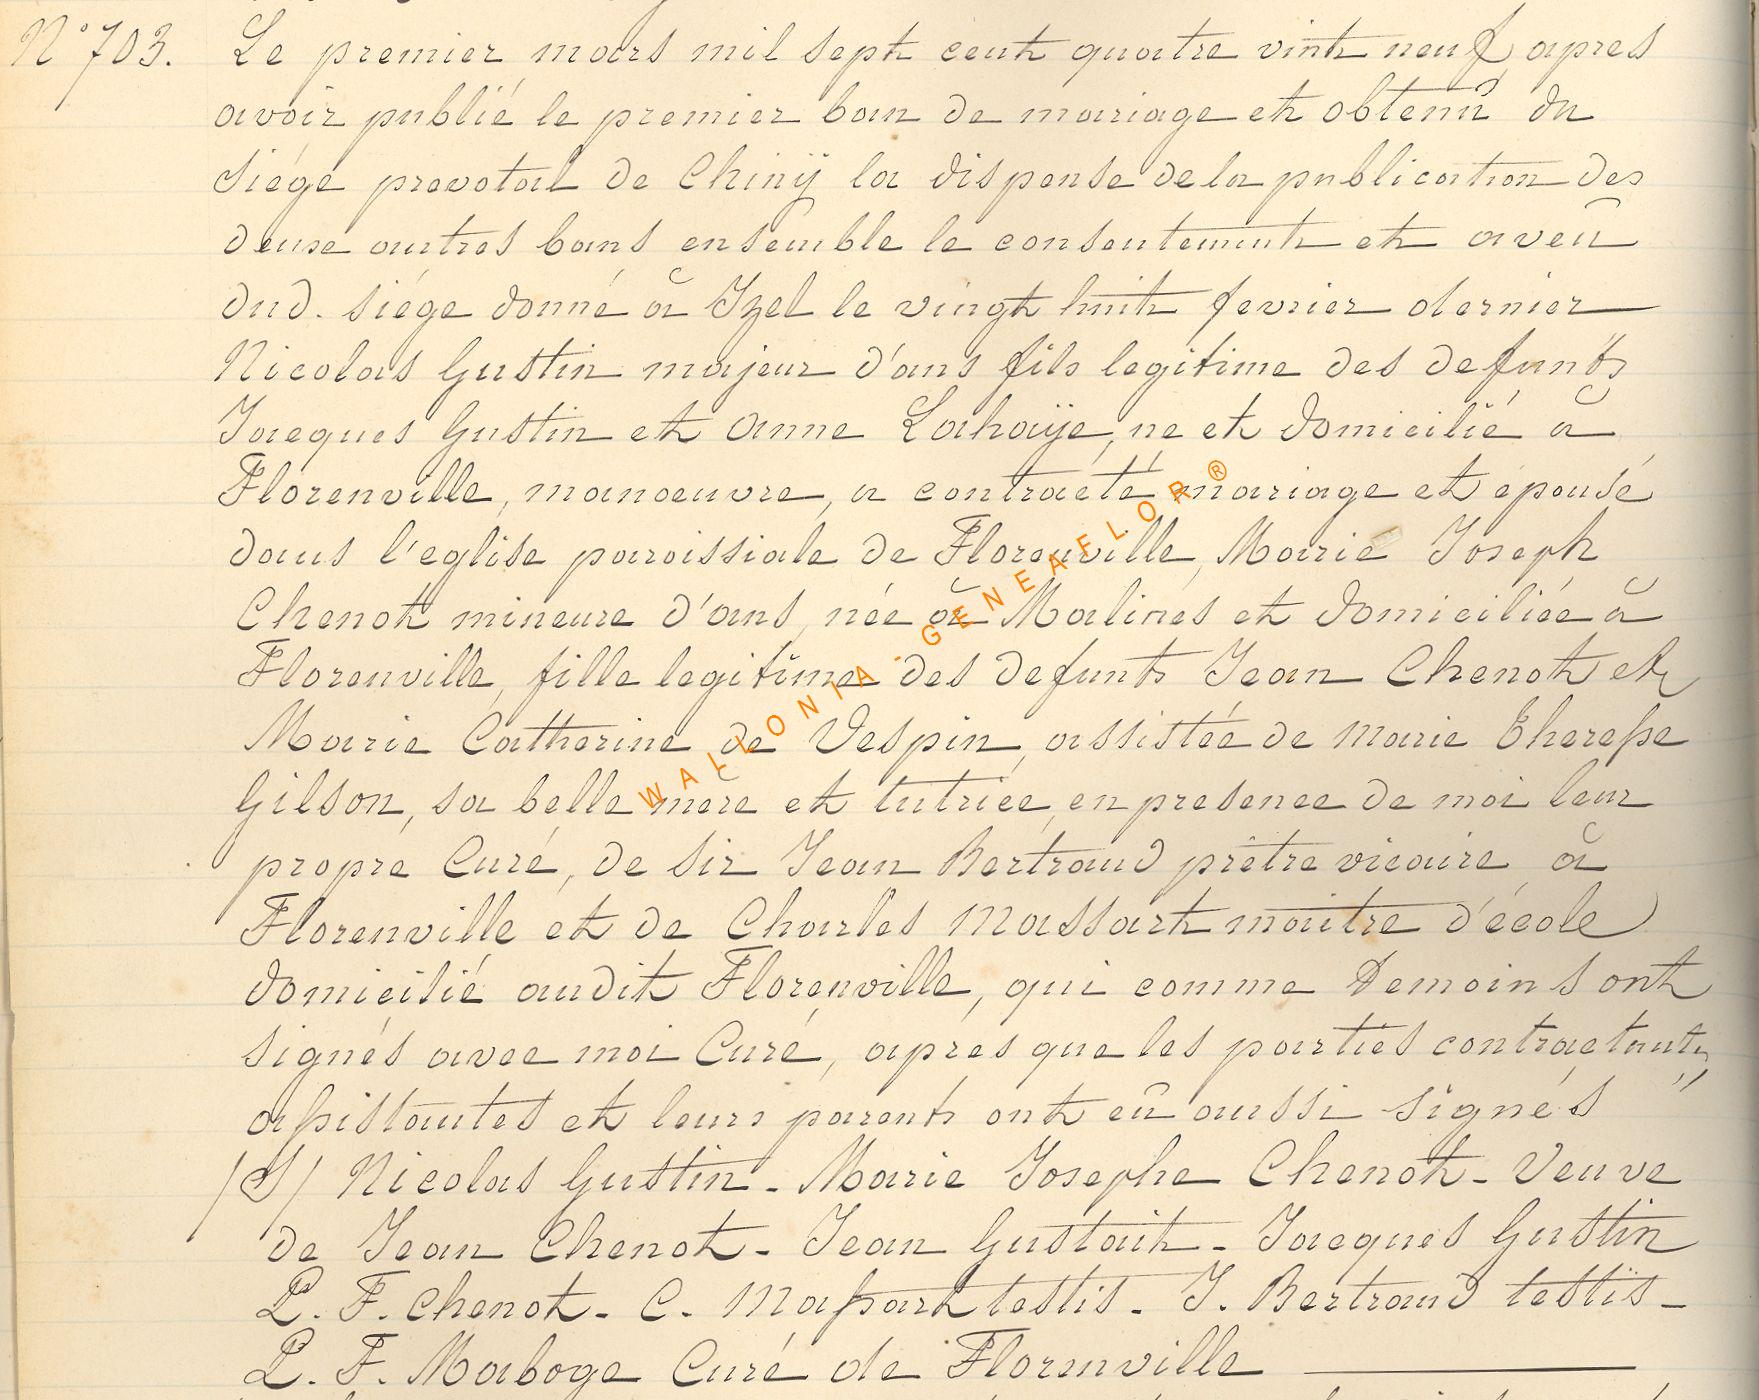 N° 703. Le premier mars mil sept cent quatre vint neuf, apres
avoir publié le premier ban de mariage et obtenu du
siége prevotal de Chinÿ la dispense de la publication des
deuxe autres bans ensemble le consentement et aveu
dud. siége donné à Izel le vingt huit fevrier dernier
Nicolas Gustin majeur d'ans fils legitime des defunts
Jacques Gustin et Anne Lahaÿe, ne et domicilié à
Florenville, manoeuvre, a contracté mariage et épousé
dans l'eglise paroissiale de Florenville, Marie Joseph
Chenot mineure d'ans, née à Malines et domiciliée à
Florenville, fille legitime des defunts Jean Chenot et
Marie Catherine de Vespin, assistée de Marie Theresse
Gilson, sa belle mère et tutrice, en presence de moi leur
propre Curé, de Sir Jean Bertrand prêtre vicaire à
Florenville et de Charles Massart maitre d'école
domicilié audit Florenville, qui comme Temoins ont
signés avec moi Curé, après que les parties contractantes,
assistantes et leurs parents ont eû aussi signés
/S/ Nicolas Gustin - Marie Josephe Chenot - Veuve
de Jean Chenot - Jean Gustait - Jacques Gustin
P. F. Chenot - C. Massart testis - J. Bertrand testis -
P. F. Maboge Curé de Florenville
WALLONIA - GENEAFLOR ®